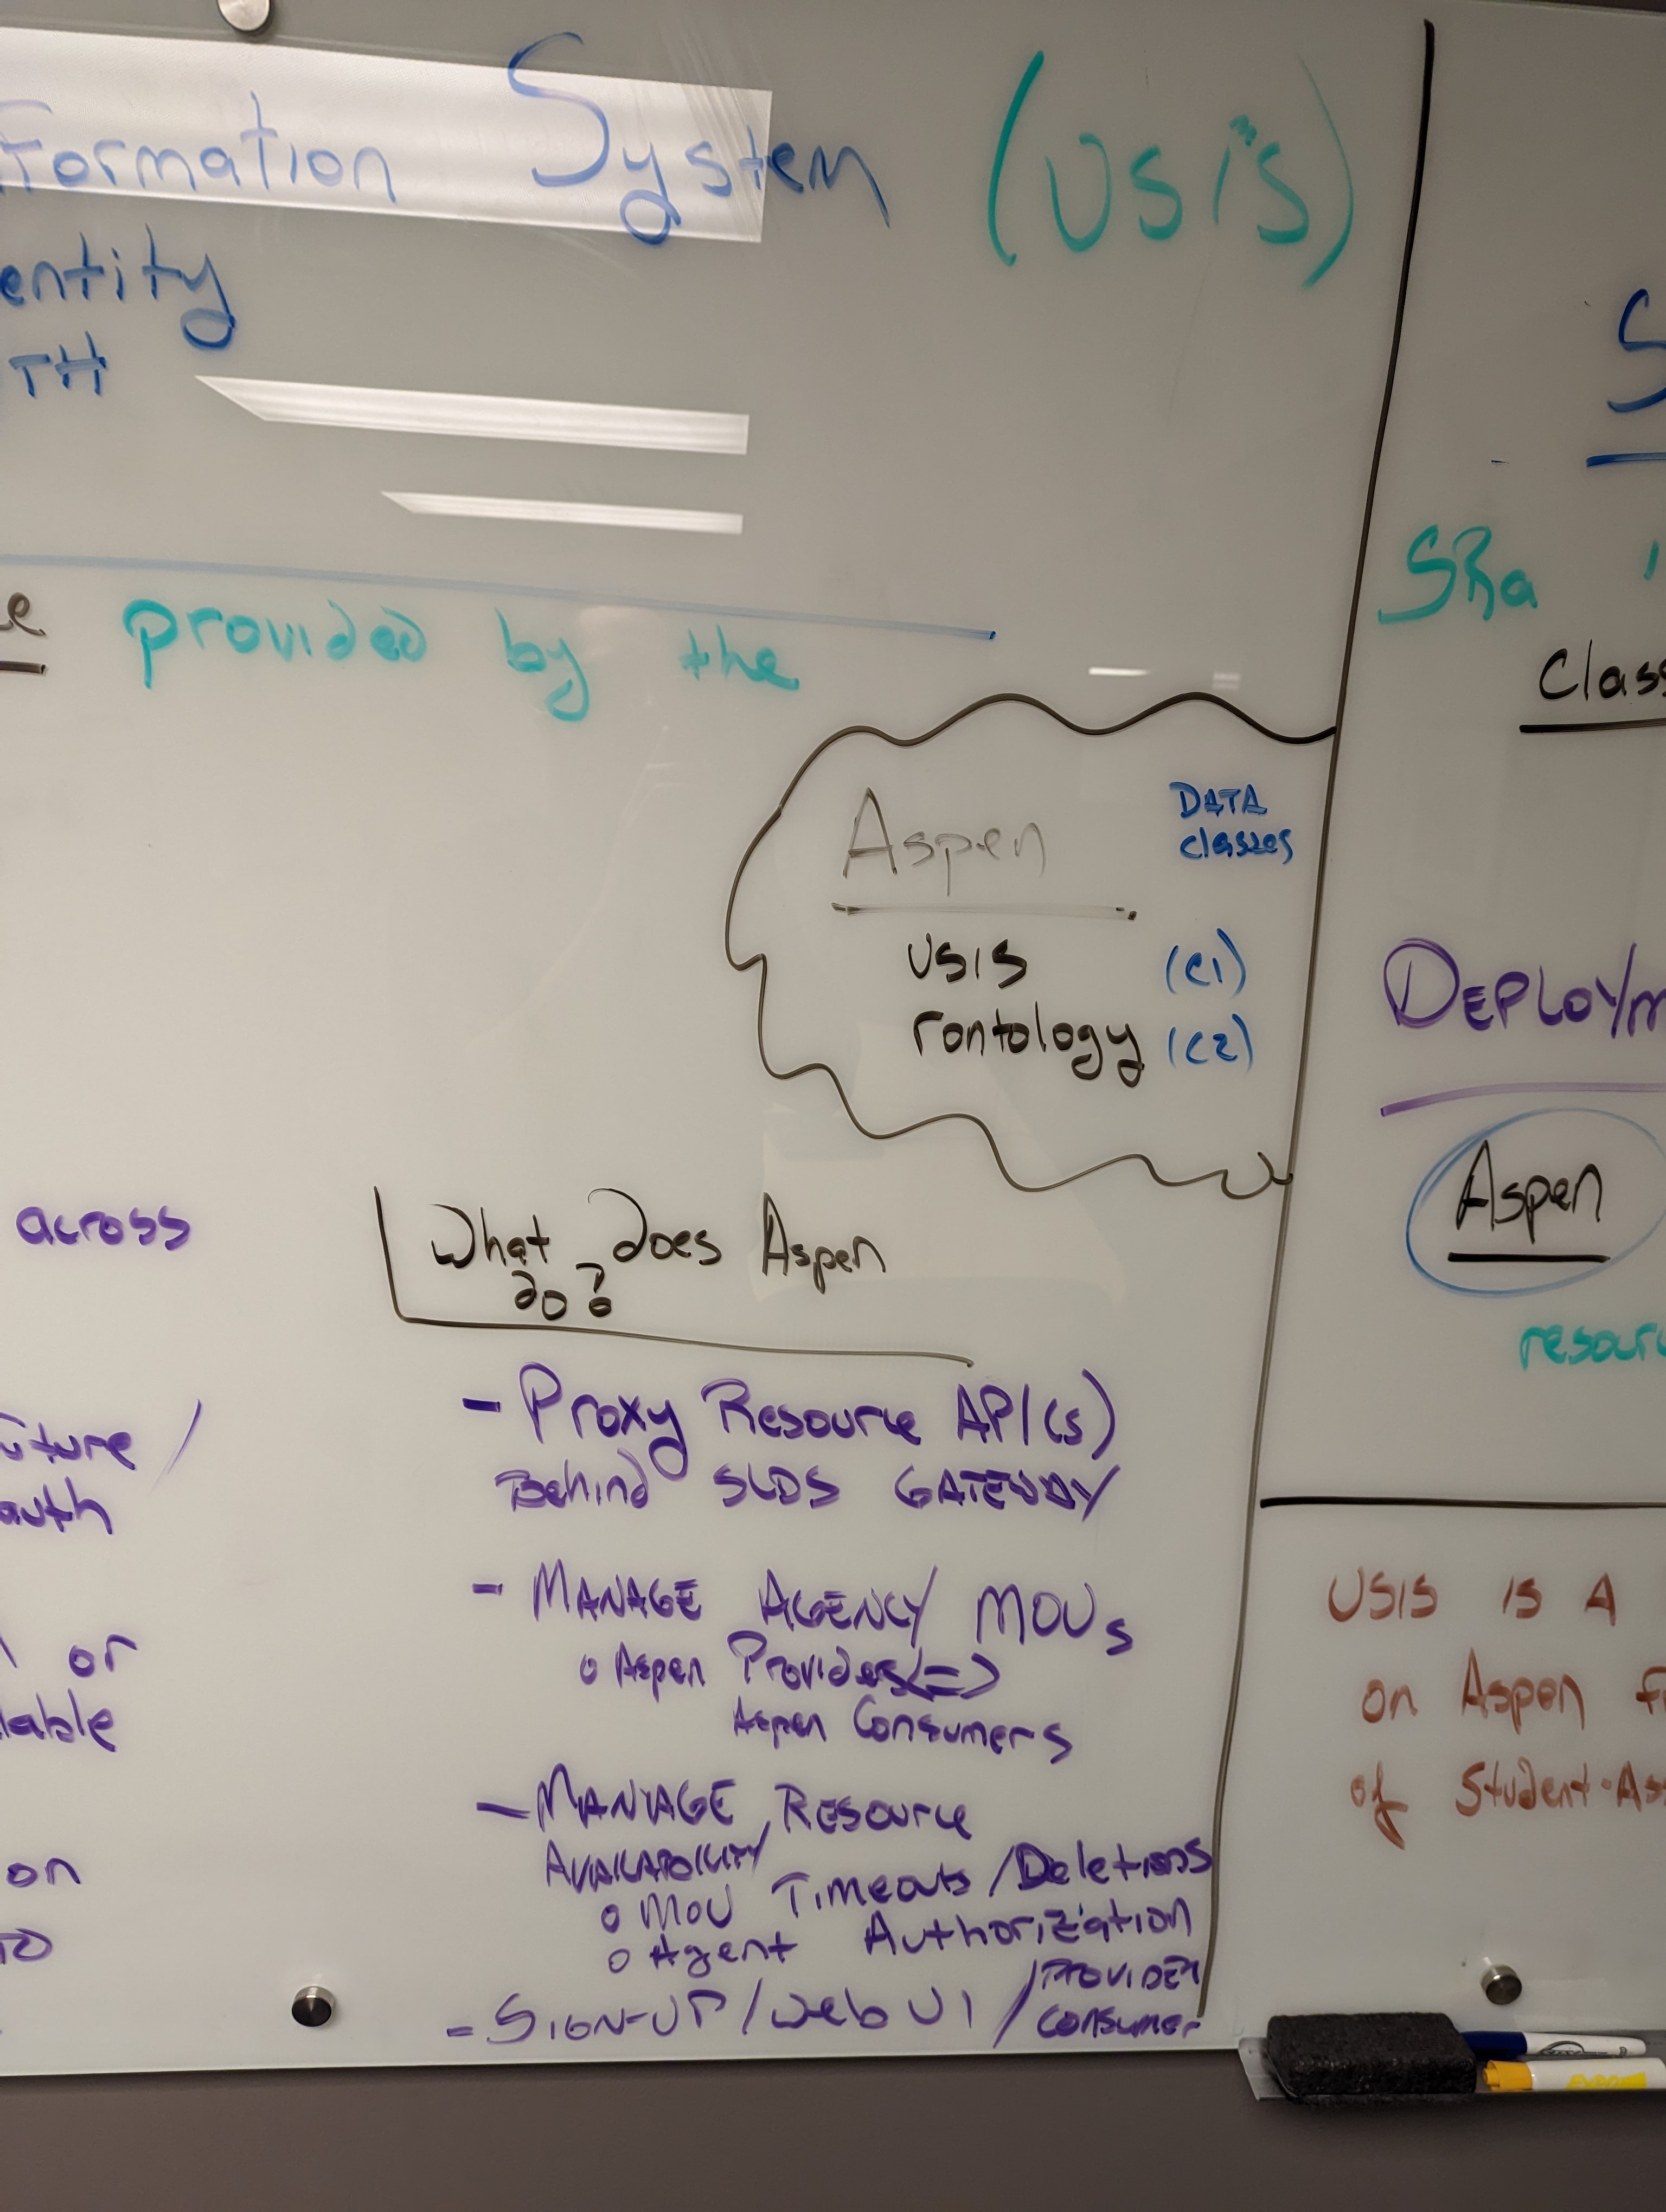 formation System (USIS)
entity
TH
provided by the
Aspen
DATA
classes
USIS (C1)
rontology (C2)
across
What does Aspen
do?
- Proxy Resource API(s)
Behind SLDS GATEWAY
- MANAGE AGENCY MOUs
o Aspen Provides <=>
Aspen Consumers
- MANAGE Resource
AVAILABILITY
o MOU Timeouts/Deletions
o Agent Authorization
- SIGN-UP/Web UI/PROVIDER
CONSUMER
uture/
auth
or
lable
on
TO
S
Sha
Class
DEPLOYM
Aspen
resour
USIS IS A
on Aspen f
of Student-Ass